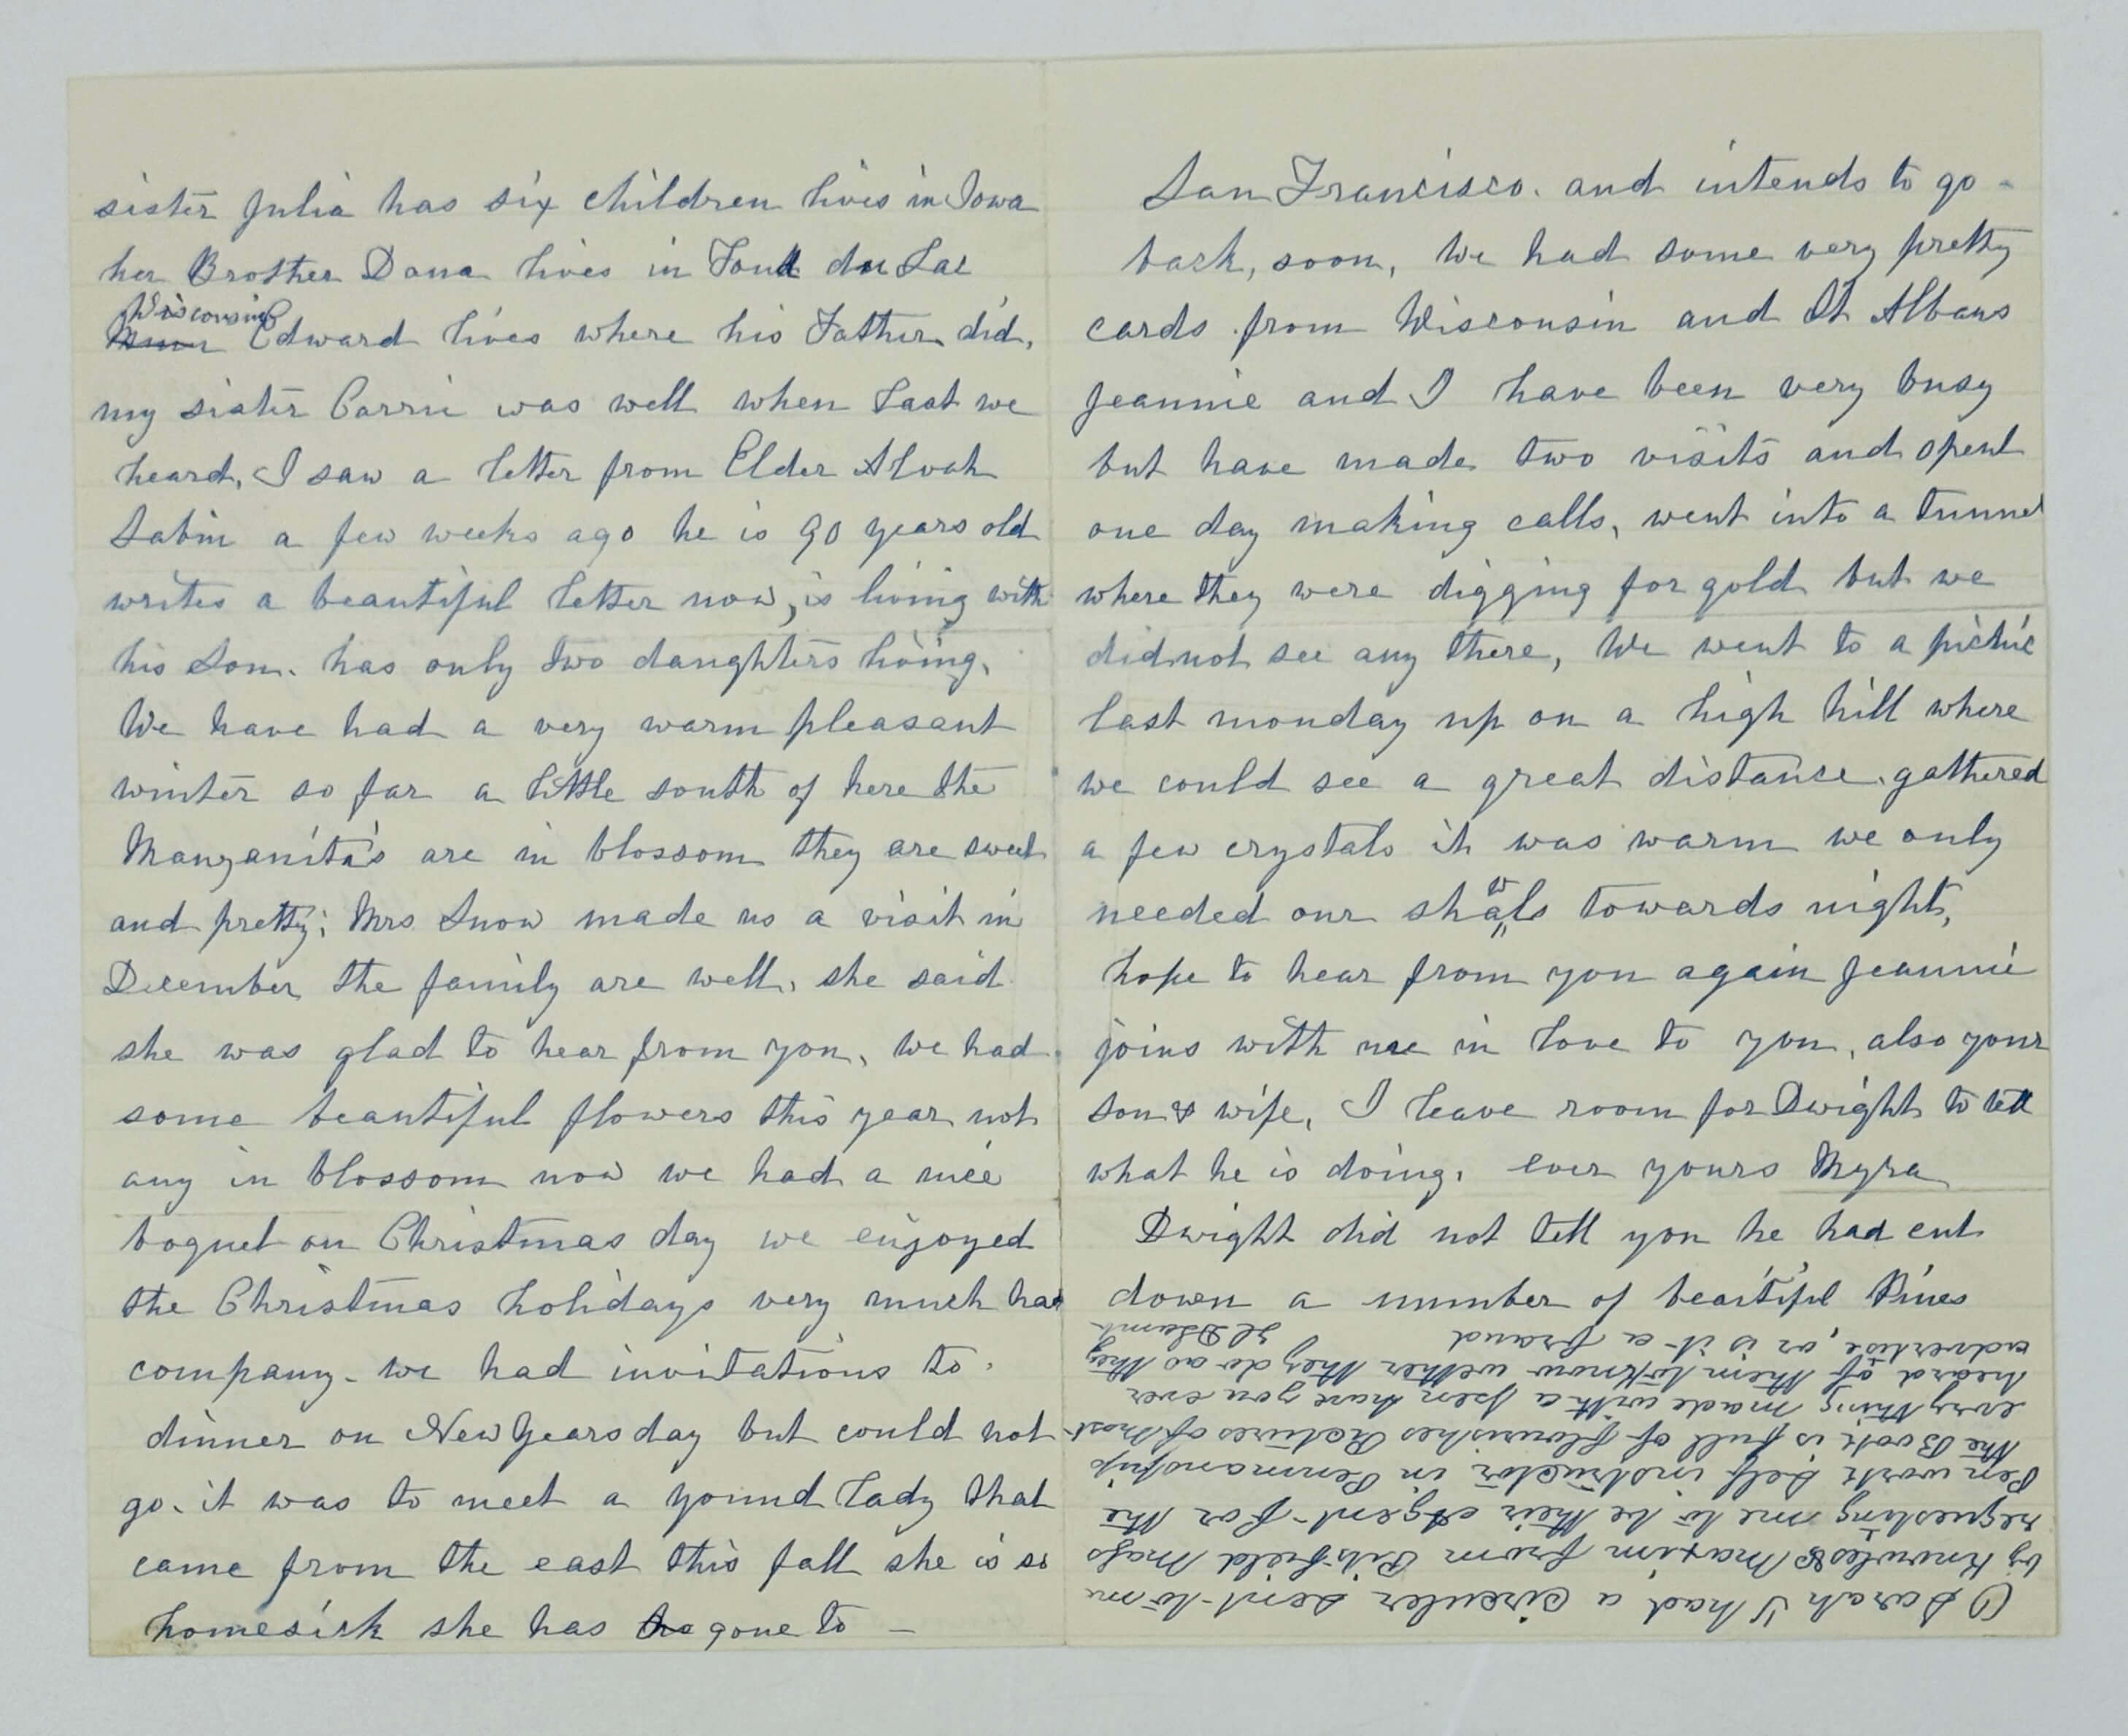 sister Julia has six children lives in Iowa
her Brother Dana lives in Fond du Lac
Wisconsin
Edward lives where his Father did,
my sister Carrie was well when last we
heard, I saw a letter from Elder Alvah
Sabin a few weeks ago he is 90 years old
writes a beautiful letter now, is living with
his Son. has only two daughters living.
We have had a very warm pleasant
winter so far a little south of here the
Manzanita's are in blossom they are sweet
and pretty; Mrs Snow made us a visit in
December the family are well, she said
she was glad to hear from you, we had
some beautiful flowers this year not
any in blossom now we had a nice
boquet on Christmas day we enjoyed
the Christmas holidays very much had
company - we had invitations to
dinner on New Years day but could not
go. it was to meet a yound lady that
came from the east this fall she is so
homesick she has gone to –
San Francisco. and intends to go -
back, soon, We had some very pretty
cards from Wisconsin and St Albans
Jeannie and I have been very busy
but have made two visits and spent
one day making calls, went into a tunnel
where they were digging for gold but we
did not see any there, We went to a picnic
last monday up on a high hill where
we could see a great distance. gathered
a few crystals it was warm we only
w
needed our shals towards night,
hope to hear from you again Jeannie
joins with me in love to you, also your
son & wife, I leave room for Dwight to tell
what he is doing. ever yours Myra
Dwight did not tell you he had cut
down a number of beautiful Pines
O Sarah I had a circuler sent to me
by Knowles & Maxim from Pitsfield Mass
requesting me to be their Agent for the
Pen work Self instructor in Penmanship
the Book is full of flourishes Pictures of most
every thing made with a pen have you ever
heard of them to know wether they do as they
advertise, or is it a fraud